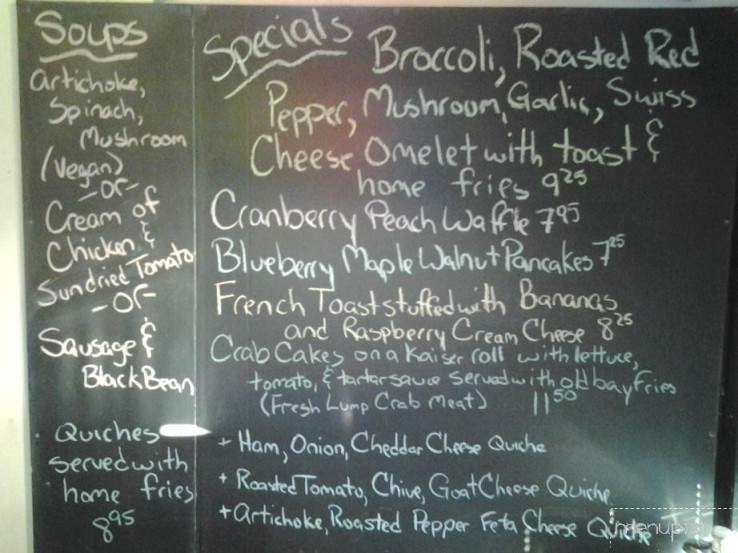 Soups
Artichoke,
Spinach,
Mushroom
(Vegan)
-or-
Cream of
Chicken &
Sundried Tomato
-or-
Sausage &
Black Bean
Quiches
served with
home fries
8 95
Specials
Broccoli, Roasted Red
Pepper, Mushroom, Garlic, Swiss
Cheese Omelet with toast &
home fries 9 25
Cranberry Peach Waffle 7 95
Blueberry Maple Walnut Pancakes 7 25
French Toast stuffed with Bananas
and Raspberry Cream Cheese 8 25
Crab Cakes on a Kaiser roll with lettuce,
tomato, & tartar sauce served with old bay fries
(Fresh Lump Crab Meat) 11 50
+ Ham, Onion, Cheddar Cheese Quiche
+ Roasted Tomato, Chive, Goat Cheese Quiche
+ Artichoke, Roasted Pepper Feta Cheese Quiche